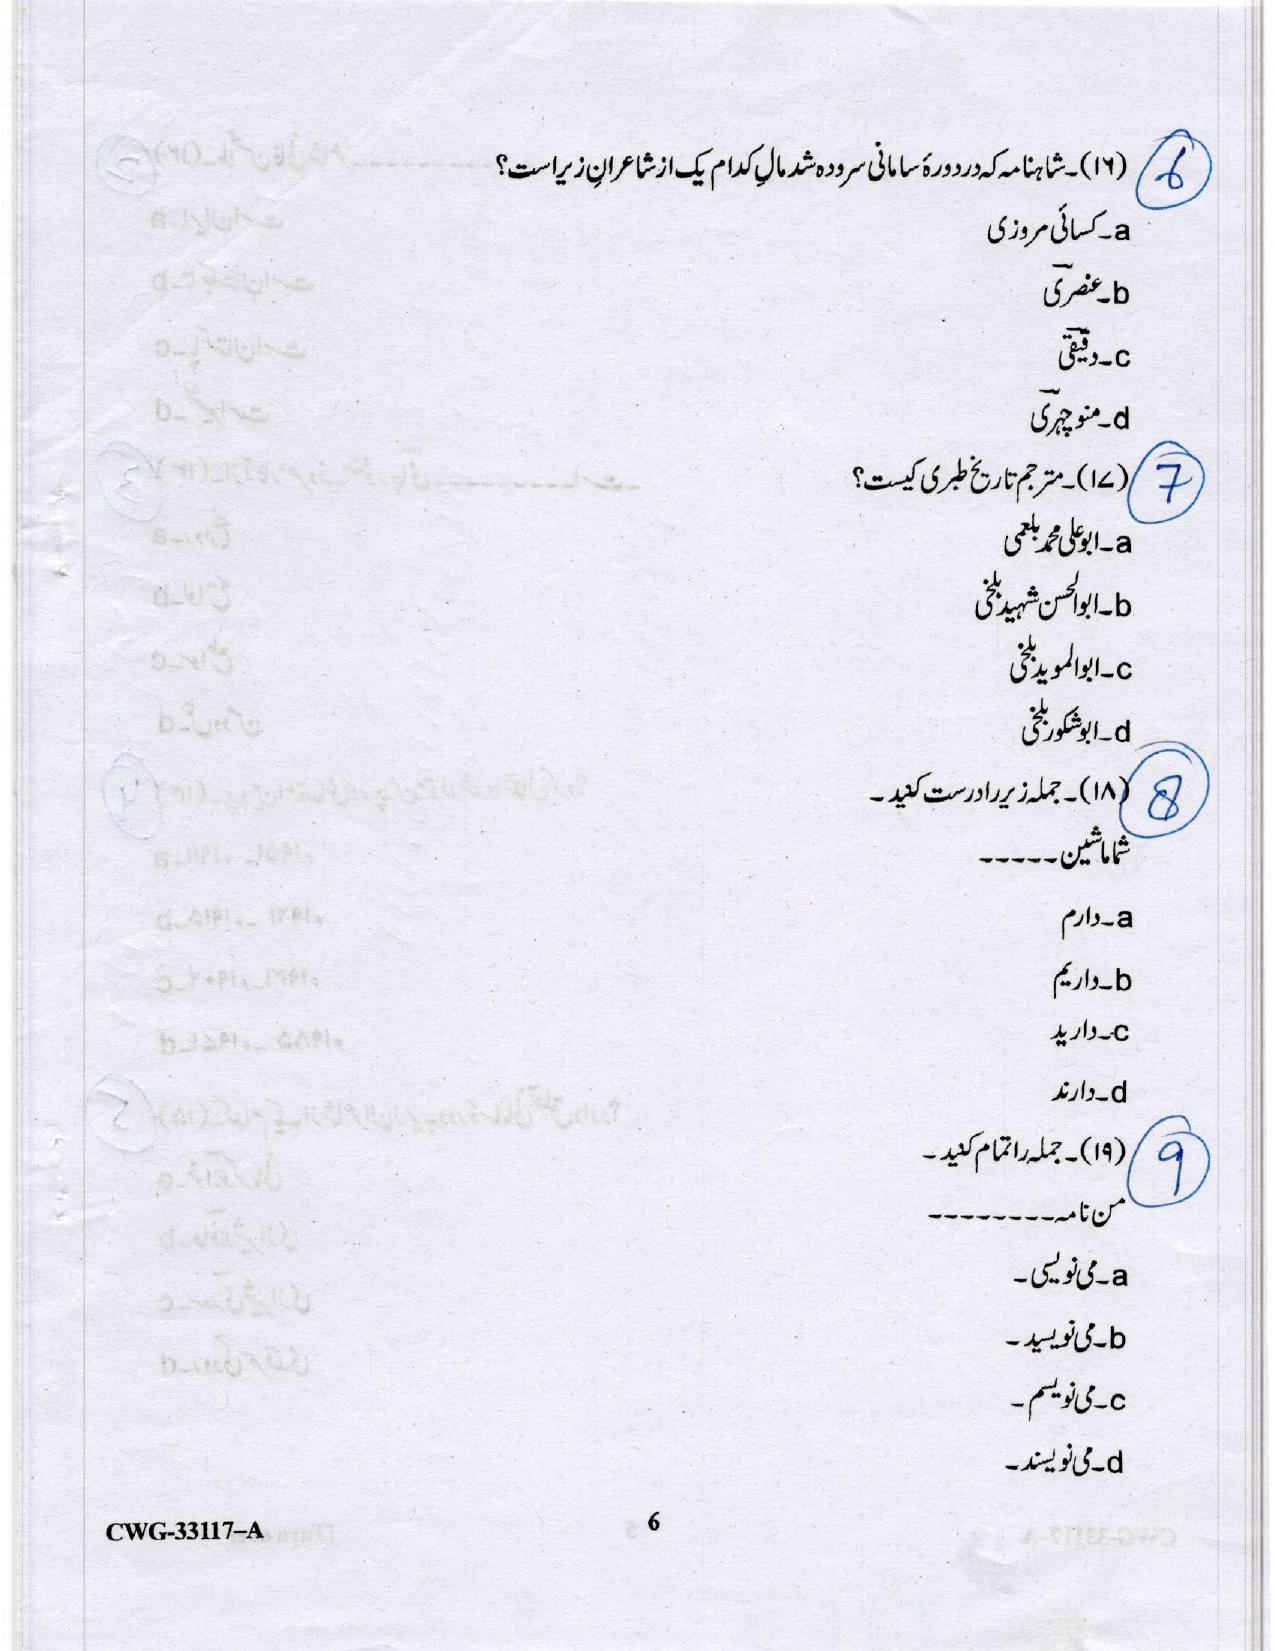 6
(۱۶)۔شاہنامہ کہ در دورۂ سامانی سرودہ شد مالِ کدام یک از شاعرانِ زیر است؟
a۔کسائی مروزی
b۔عنصری
c۔دقیقی
d۔منوچہری
7
(۱۷)۔مترجم تاریخ طبری کیست؟
a۔ابوعلی محمد بلعمی
b۔ابوالحسن شہید بلخی
c۔ابوالموید بلخی
d۔ابوشکور بلخی
8
(۱۸)۔جملہ زیر را درست کنید۔
شما ماشین-----
a۔دارم
b۔داریم
c۔دارید
d۔دارند
9
(۱۹)۔جملہ را تمام کنید۔
من نامہ--------
a۔می نویسی۔
b۔می نویسید۔
c۔می نویسم۔
d۔می نویسند۔
CWG-33117–A
6